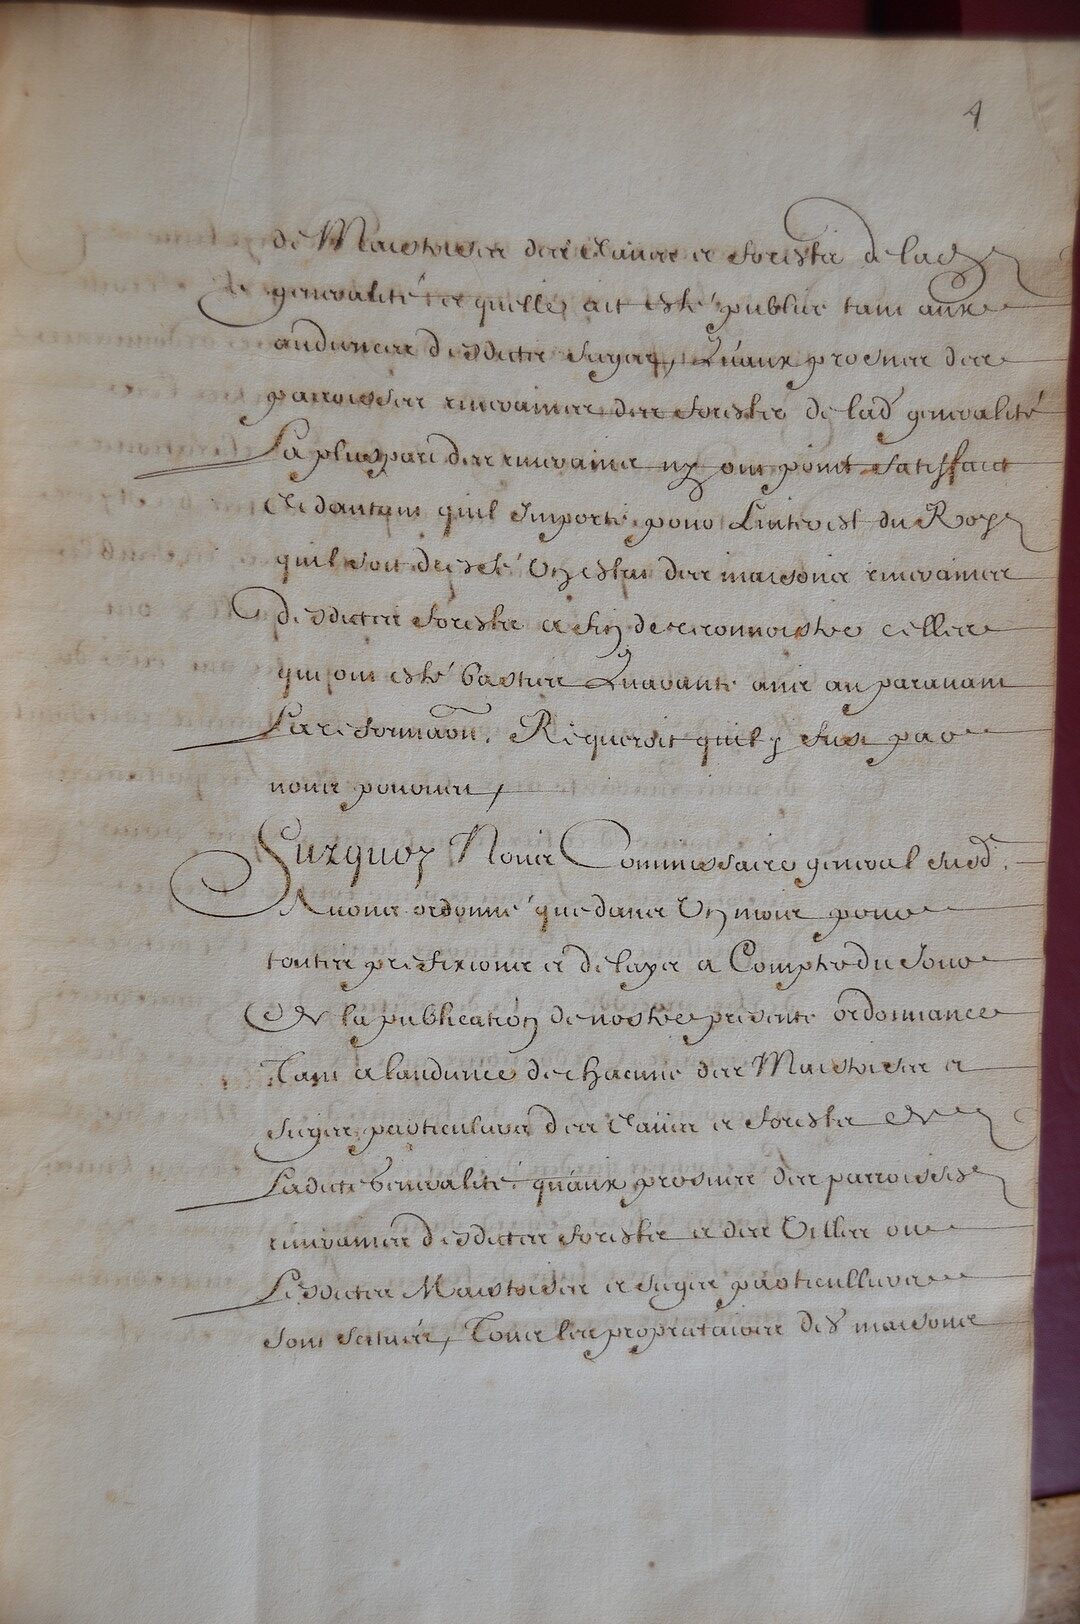 4
de Maistrises des Eaues et forests de lad
generalité et quelle ait esté publiee tant aux
audiences desdictes sieges, Quaux prosnes des
parroisses riveraines des forests de lad generalité
La pluspart des riverains ny ont point satisfaict
Et dautant quil Importe pour Linterest du Roy
quil soit dressé Un estat des maisons riveraines
desdictes forests et afin de recconnoistre celles
qui ont esté basties Quarante ans au paravant
La reformaõn. Requeroit quil y fust par
nous pourveu,
Surquoy Nous Commissaire general susd.
Avons ordonné que dans Un mois pour
toutes prefixions et delays a Compter du Jour
De la publication de nostre presente ordonnance
Tant a laudience de chacune des Maistrises et
sieges particuliers des Eaües et forests de
Ladicte Generalité quaux prosnes des parroisses
riveraines desdictes forests et des Villes ou
Lesdictes Maistrises et sieges particulliers
sont scituéz, Tous les proprietaires des maisons